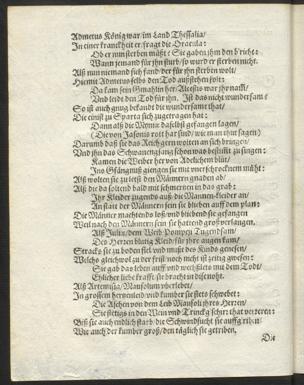 Admetus König war/ im Land Thessalia/
In einer kranckheit er fragt die Oracula:
Ob er nun sterben müßt? Sie gaben ihm den b'richt:
Wann jemand für ihn sturb/ so wurd er sterben nicht.
Alß nun niemand sich fand/ der für ihn sterben wolt/
Hiemit Admetus selbs den Tod außstehen solt:
Da kam sein Gmahlin her/ Alcestus war ihr nam/
Und leidt den Tod für ihn. Ist das nicht wundersam?
So ist auch gnug bekandt die wunderthat/
Die einst zu Sparta sich zugetragen hat:
Dann alß die Mynnis daselbst gefangen lagen/
(Die von Jasonis rott har sind/ wie man thut sagen)
Darumb daß sie das Reich gern wolten an sich bringen/
Und ihn das Schwanengsang schon was bestellt zu singen:
Kamen die Weiber her von Adelichem blüt/
Ins Gfängnuß giengen sie mit unerschrocknem müht:
Alß wolten sie zu letst den Männern gnaden ab
Alß die da soltend bald mit schmertzen in das grab:
Ihr Kleider zugend auß/ die Männer-kleider an/
An statt der Männern sein sie blieben auff dem plan:
Die Männer machtend loß/ und bliebend sie gefangen
Weil nach den Männern sein sie hattend groß verlangen.
Alß Julia/ dem Weib Pompeji Tugendsam/
Des Herren blütig Kleid für ihre augen kam/
Stracks sie zu boden fiel und müst des Kinds genesen/
Welchs gleichwol zu der frist noch nicht ist zeitig gwesen:
Sie gab das leben auff und wechslets mit dem Todt/
Ehlicher liebe krafft sie bracht in dise noht.
Alß Artemisia/ Mausolum überlebet/
In grossem hertzenleid und kumber sie stets schwebet:
Die Aschen von dem Leib Mausoli ihres Herren/
Sie stetigs in den Wein und Tranck that verzeren:
Biß sie auch endlich starb/ die Schwindsucht sie auffg'riben/
Wie auch der kumber groß/ den täglich sie getriben.
Die